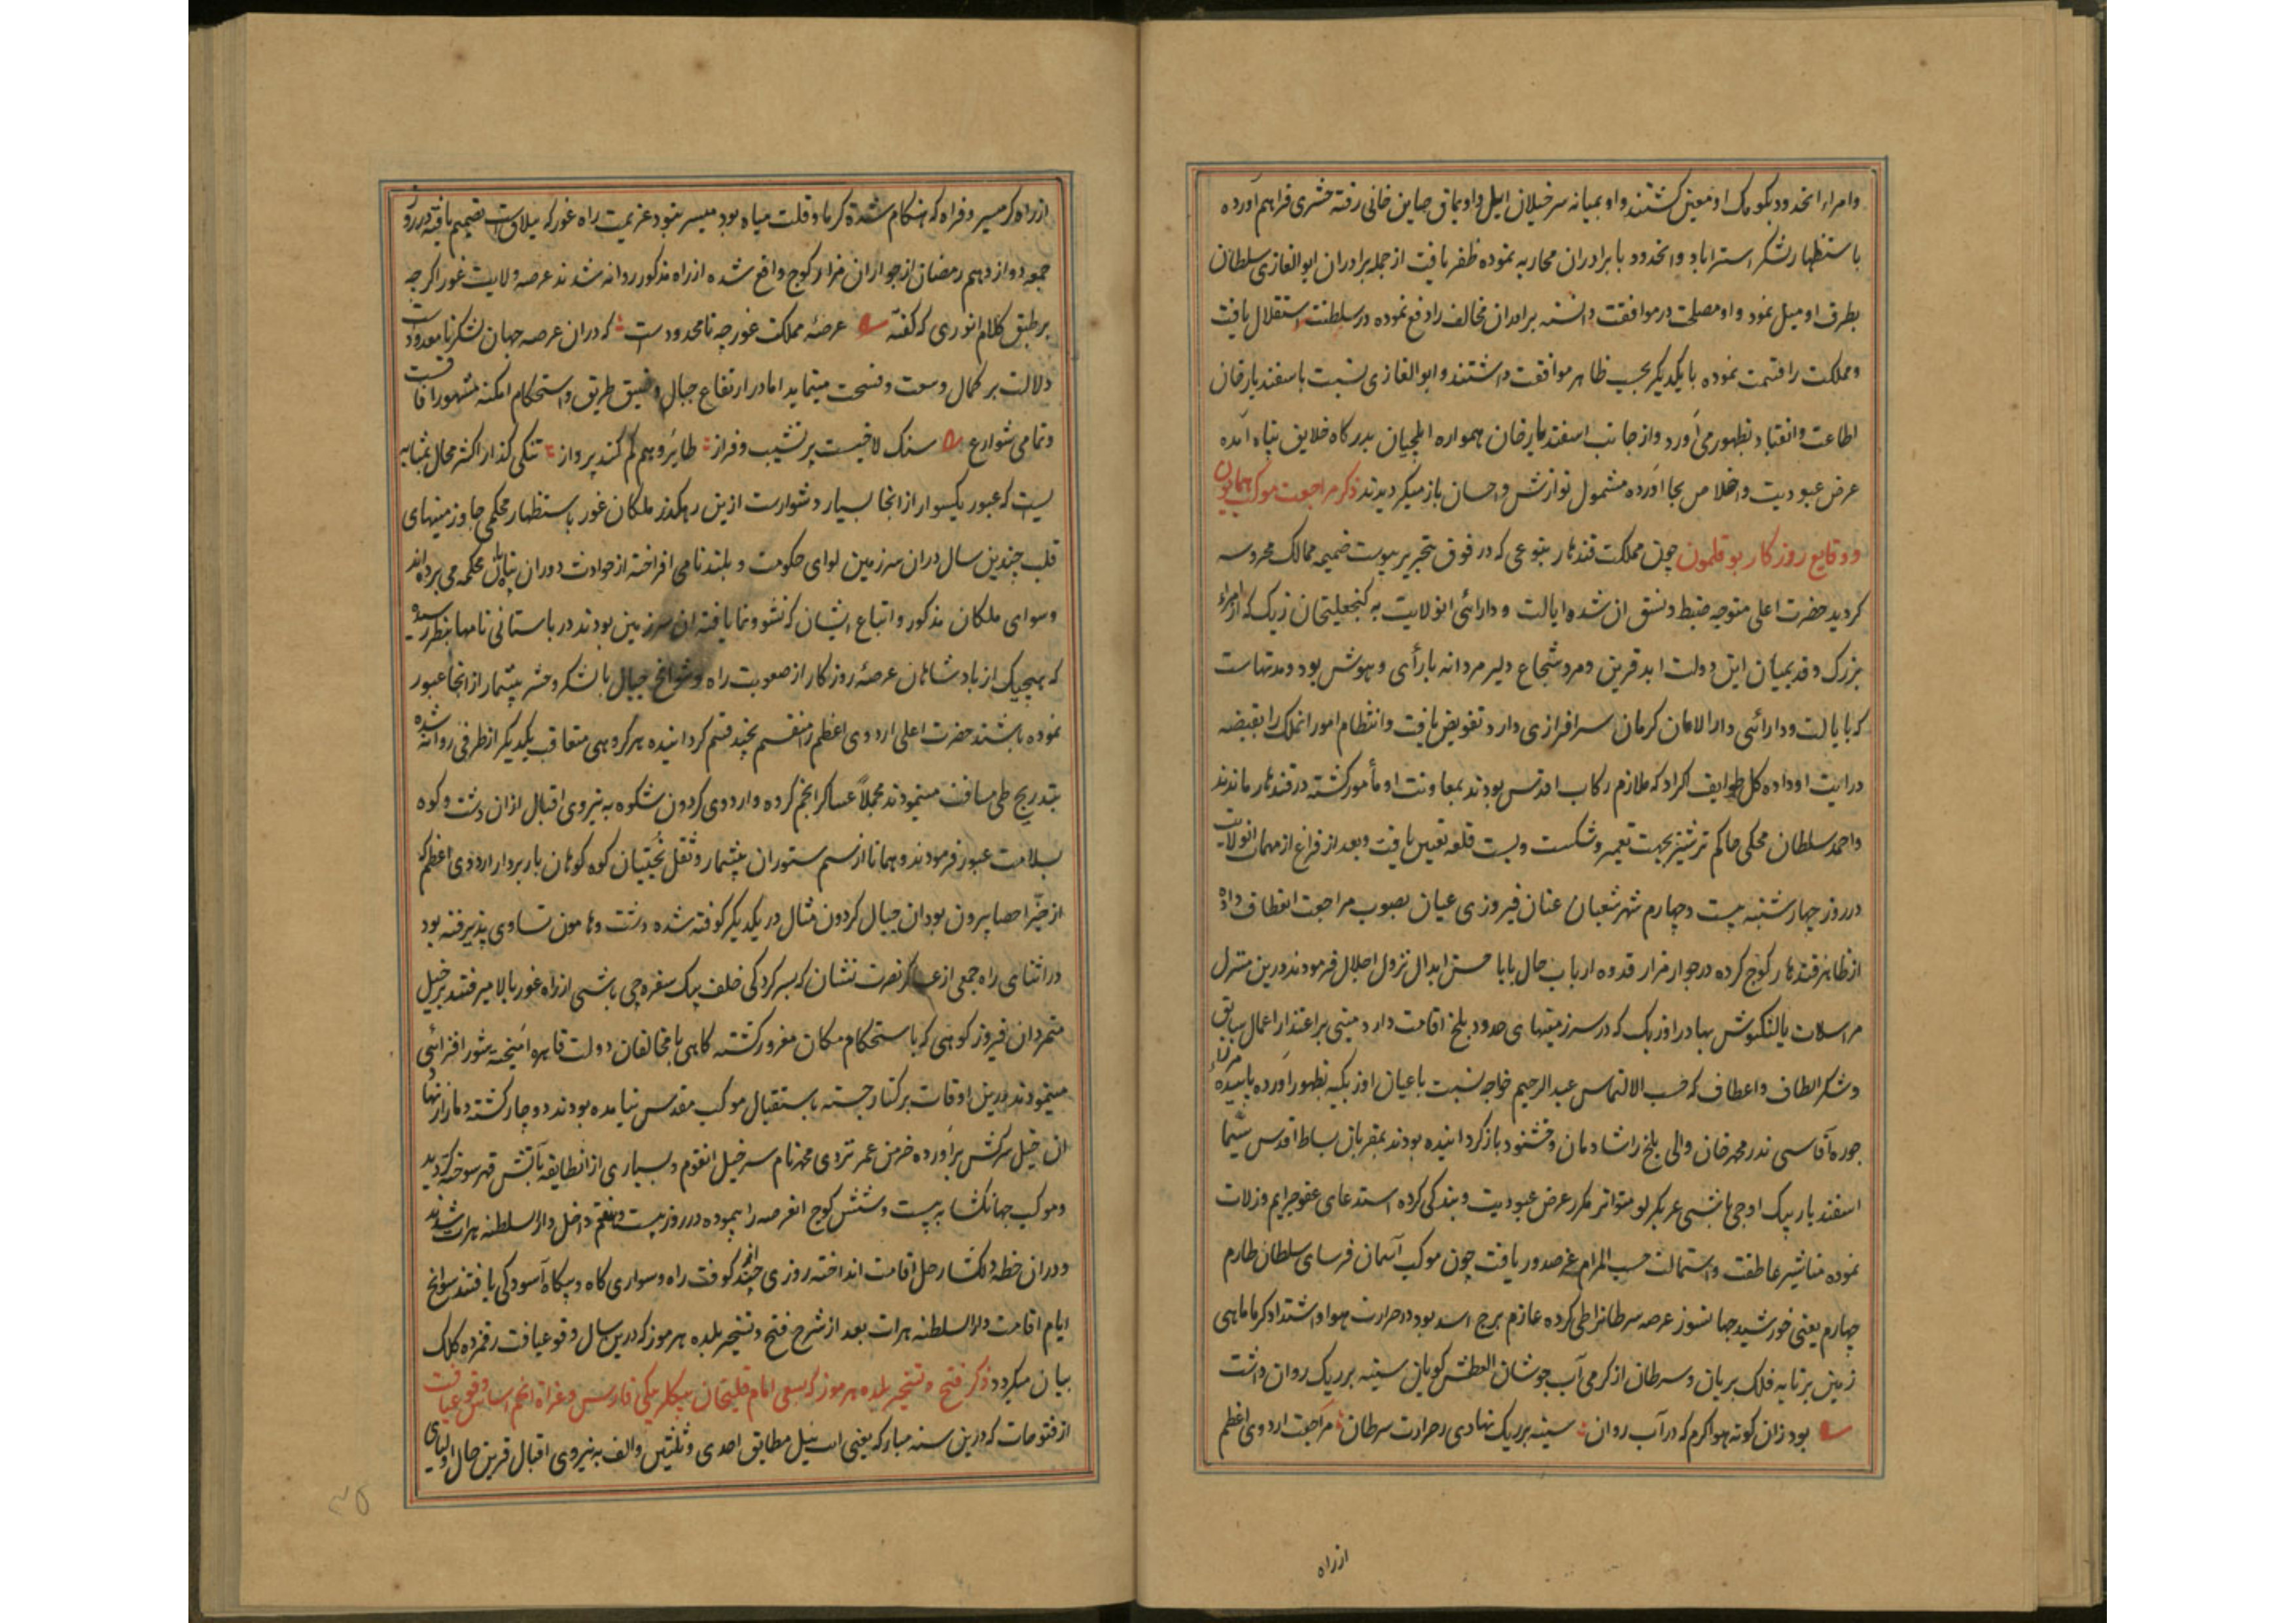 وامراء انحدود بکومک او معین گشتند و او بمیانه سرخیلان ایل و اویماق صاین خانی رفته حشری فراهم آورده
باستظهار لشکر استراباد و انحدود با برادران محاربه نموده ظفر یافت از جمله برادران ابوالغازی سلطان
بطرف او میل نمود و او مصلحت در موافقت دانسته برادران مخالف را دفع نموده در سلطنت استقلال یافت
و مملکت را قسمت نموده با یکدیگر بحسب ظاهر موافقت داشتند و ابوالغازی نسبت باسفندیار خان
اطاعت و انقیاد بظهور می آورد و از جانب اسفندیار خان همواره ایلچیان بدرگاه خلایق پناه آمده
عرض عبودیت و اخلاص بجا آورده مشمول نوازش و احسان باز میگردیدند ذکر مراجعت موکب همایون
و وقایع روزگار بوقلمون چون مملکت قندهار بنوعی که در فوق بتحریر پیوست ضمیمه ممالک محروسه
گردید حضرت اعلی متوجه ضبط و نسق ان شده ایالت و دارائی انولایت به گنجعلیخان زیک که از امراء
بزرگ و قدیمیان این دولت ابد قرین و مرد شجاع دلیر مردانه با رأی و هوش بود و مدتهاست
که بایالت و دارائی دار الامان کرمان سرافرازی دارد تفویض یافت و انتظام امور انملک را بقبضه
درایت او داده کل طوایف اکراد که ملازم رکاب اقدس بودند بمعاونت او مأمور گشته در قندهار ماندند
و احمد سلطان محکی حاکم ترشیز بجهت تعمیر و شکست و بست قلعه تعیین یافت و بعد از فراغ از مهمات انولایت
در روز چهارشنبه بیست و چهارم شهر شعبان عنان فیروزی عیان بصوب مراجعت انعطاف داده
از ظاهر قندهار کوچ کرده در جوار مزار قدوه ارباب حال بابا حسن ابدال نزول اجلال فرمودند درین منزل
مراسلات یالنکتوش بهادر اوزبک که در سرزمینهای حدود بلخ اقامت دارد مبنی بر اعتذار اعمال سابق
و شکر الطاف و اعطاف که حسب الالتماس عبدالرحیم خواجه نسبت باعیان اوزبکیه بظهور آورده پاینده میرزاء
جوره آقاسی ندر محمد خان والی بلخ را شادمان و خشنود باز گردانیده بودند بمقربان بساط اقدس سیما
اسفندیار بیک اوجی باشی عربکرلو متواتر مکرر عرض عبودیت و بندگی کرده استدعای عفو جرایم و زلات
نموده مناشیر عاطفت و استمالت حسب المرام عز صدور یافت چون موکب آسمان فرسای سلطان طارم
چهارم یعنی خورشید جهانسوز عرصه سرطانرا طی کرده عازم برج اسد بود در حرارت هوا و اشتداد گرما ماهی
زمین برتابه فلک بریان و سرطان از گرمی آب جوشان العطش گویان سینه بر ریک روان داشت
بود زان گونه هوا گرم که در آب روان سینه بر ریک نهادی ز حرارت سرطان مراجعت اردوی اعظم
از راه
از راه گرمسیر و فراه که هنگام شده گرما و قلت میاه بود میسر نبود عزیمت راه غور که ییلاق است تصمیم یافته در روز
جمعه دوازدهم رمضان از جوار ان مزار کوچ واقع شده از راه مذکور روانه شدند عرصه ولایت غور اگرچه
بر طبق کلام انوری که گفته عرصهٔ مملکت غور چه نامحدود ست که در ان عرصه جهان لشکر نامعدودست
دلالت بر کمال وسعت و فسحت مینماید اما در ارتفاع جبال و ضیق طریق و استحکام امکنه مشهور افاقست
و تمامی شوارع سنک لاخیست پر نشیب و فراز طایر وهم کم کند پرواز تنکی گذار اکثر محال بمثابه
ایست که عبور یکسوار از انجا بسیار دشوارست ازین رهگذر ملکان غور باستظهار محکمی جا و زمینهای
قلب چندین سال دران سرزمین لوای حکومت و بلند نامی افراخته از حوادث دوران پناه بان محکمه می برده اند
و سوای ملکان مذکور و اتباع ایشان که نشو و نما یافته ان سرزمین بودند در باستانی نامها بنظر رسیده
که هیچیک از پادشاهان عرصهٔ روزگار از صعوبت راه و شوامخ جبال با لشکر و حشر بیشمار از انجا عبور
نموده باشند حضرت اعلی اردوی اعظم را منقسم بچند قسم گردانیده هر گروهی متعاقب یکدیگر از طرفی روانه شده
بتدریج طی مسافت مینمودند مجملاً عساکر انجم گروه و اردوی گردون شکوه به نیروی اقبال ازان دشت و کوه
بسلامت عبور فرمودند و همانا از سم ستوران بیشمار و ثقل بختیان کوه کوهان باربردار اردوی اعظم که
از حیز احصا بیرون بود ان جبال گردون مثال در یکدیگر کوفته شده دشت و هامون تساوی پذیرفته بود
در اثنای راه جمعی از عساکر نصرت نشان که بسرکردگی خلف بیک سفره چی باشی از راه غور بالا میرفتند بر خیل
متمردان فیروزکوهی که باستحکام مکان مغرور گشته گاهی با مخالفان دولت قاهره آمیخته شورافزائی
مینمودند درین اوقات بر کنار جسته باستقبال موکب مقدس نیامده بودند دوچار گشته دمار از نهاد
ان خیل سرکش برآورده خرمن عمر تردی محمد نام سرخیل انقوم و بسیاری از انطایفه بآتش قهر سوخته گردید
و موکب جهانگشا به بیست و شش کوچ انعرصه را پیموده در روز بیست و هفتم داخل دار السلطنه هرات شدند
و دران خطه دلگشا رحل اقامت انداخته روزی چند از کوفت راه و سواری گاه و بیگاه آسودگی یافتند سوانح
ایام اقامت دار السلطنه هرات بعد از شرح فتح و تسخیر بلده هرموز که درین سال وقوع یافت رقمزده کلک
بیان میگردد ذکر فتح و تسخیر بلده هرموز که بسعی امام قلیخان بیگلربیگی فارس و غزاة انجم اساس وقوع یافت
از فتوحات که درین سنه مبارکه یعنی ایت ئیل مطابق احدی و ثلثین و الف به نیروی اقبال قرین حال اولیای